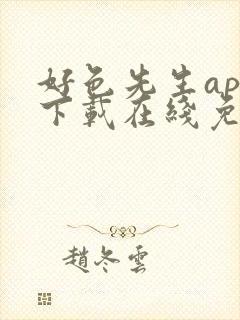 好色先生ap
下載在綫免
趙冬雲